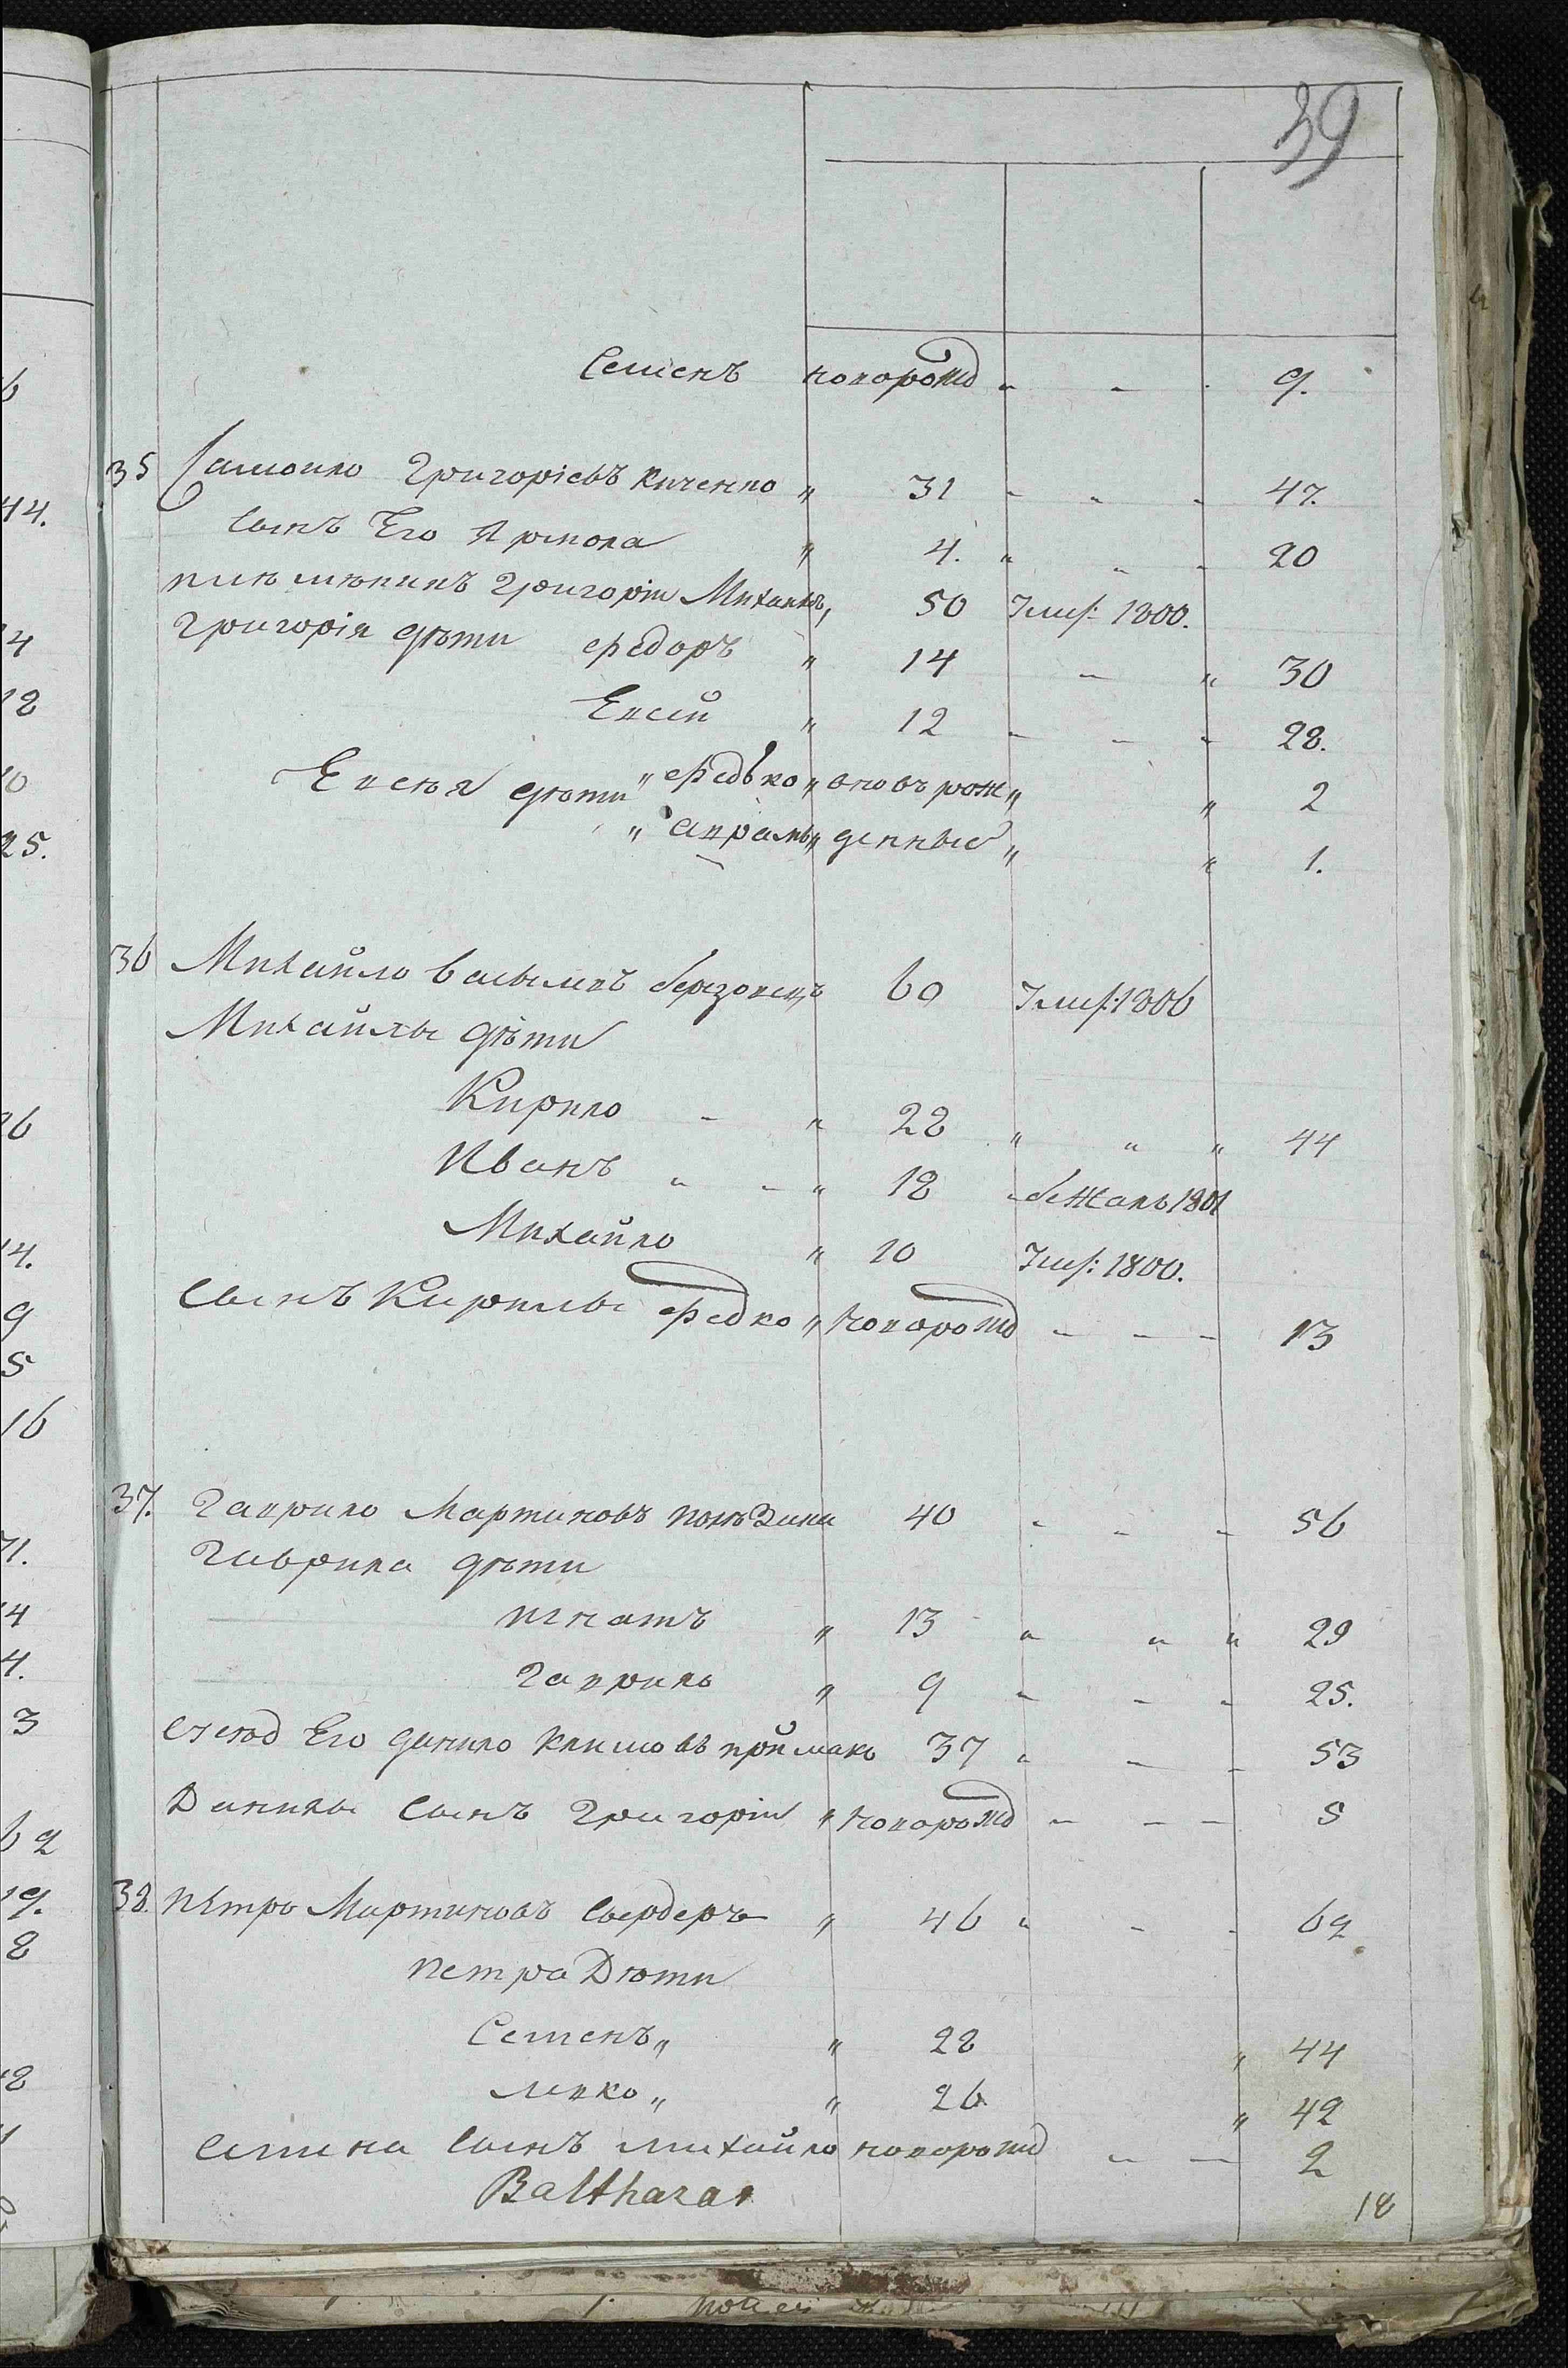 39
Семенъ новорожд 9.
35 Самоило Григоріевъ Киченко 31 47.
Сынъ Его Ярмола 4. 20
племѣникъ Григоріи Михаилъ, 50 Умеръ: 1800.
Григорія дѣти Федоръ 14 30
Евсѣй 12 28.
Евсѣя дѣти Федько вновь рож 2
Аврамъ денные 1.
36 Михайло Васылевъ 60 Умеръ: 1806
Михайлы дѣти
Кирило 28 44
Иванъ 18 бежалъ 1801
Михайло 10 Умеръ: 1800.
Сынъ Кирилы Федко новорожд 13
37. Гаврило Мартиновъ 40 56
Гаврила дѣти
Игнатъ 13 29
Гаврило 9 25.
Его Данило Климовъ приймакъ 37 53
Данилы Сынъ Григоріи новорожд 5
38. Петро Мартиновъ Свердеръ 46 62
Петра Дѣти
Семенъ 28 44
Левко 26 42
Семена Сынъ Михайло новорожд 2
Balthazar
18